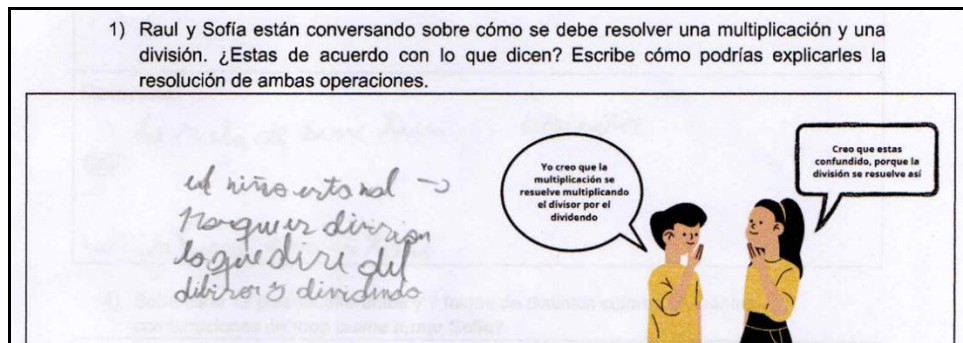 1) Raul y Sofía están conversando sobre cómo se debe resolver una multiplicación y una
división. ¿Estas de acuerdo con lo que dicen? Escribe cómo podrías explicarles la
resolución de ambas operaciones.
el niño esta mal →
porque es division
lo que dice del
dibisor y dividendo
Yo creo que la
multiplicación se
resuelve multiplicando
el divisor por el
dividendo
Creo que estas
confundido, porque la
división se resuelve así